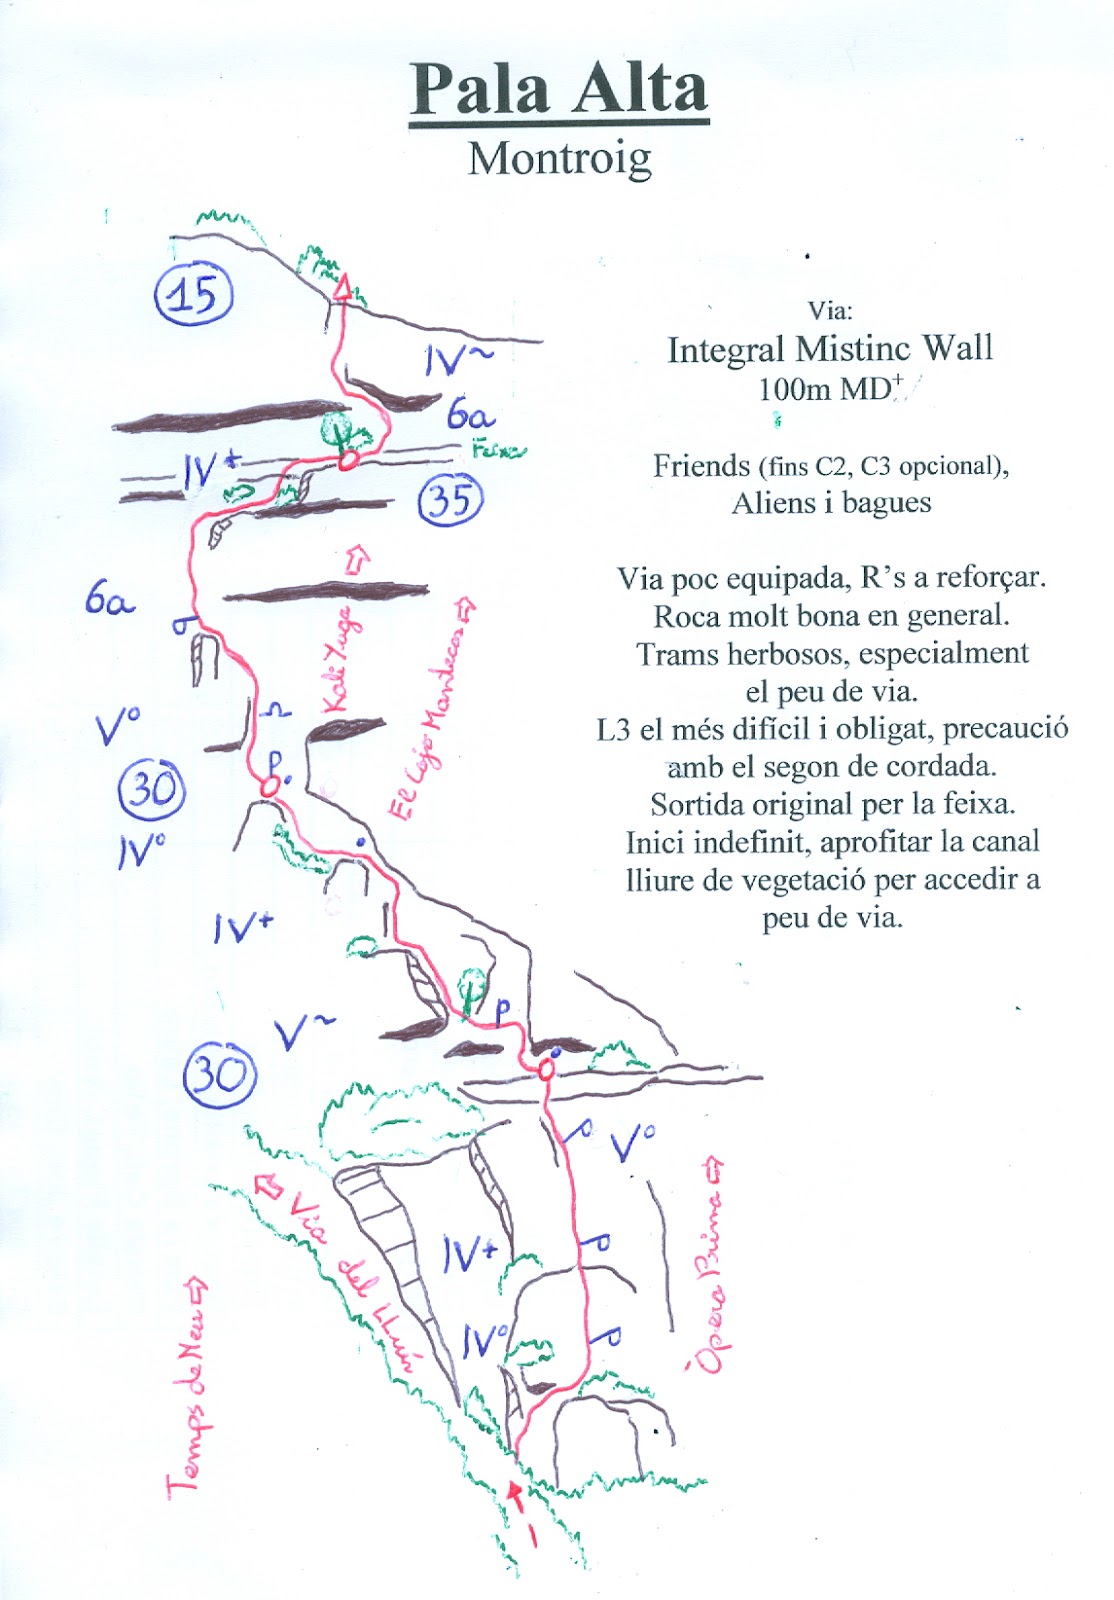 Pala Alta
Montroig
15
IV~
Via:
Integral Mistinc Wall
100m MD+
6a
IV+
Feixa
35
Friends (fins C2, C3 opcional),
Aliens i bagues
6a
Kali Yuga
El Cojo Mantecas
Via poc equipada, R’s a reforçar.
Roca molt bona en general.
Trams herbosos, especialment
el peu de via.
L3 el més difícil i obligat, precaució
amb el segon de cordada.
Sortida original per la feixa.
Inici indefinit, aprofitar la canal
lliure de vegetació per accedir a
peu de via.
Vº
30
P
IVº
IV+
V~
P
30
Vº
Via del Lluís
IV+
P
IVº
P
Òpera Prima
Temps de Neu